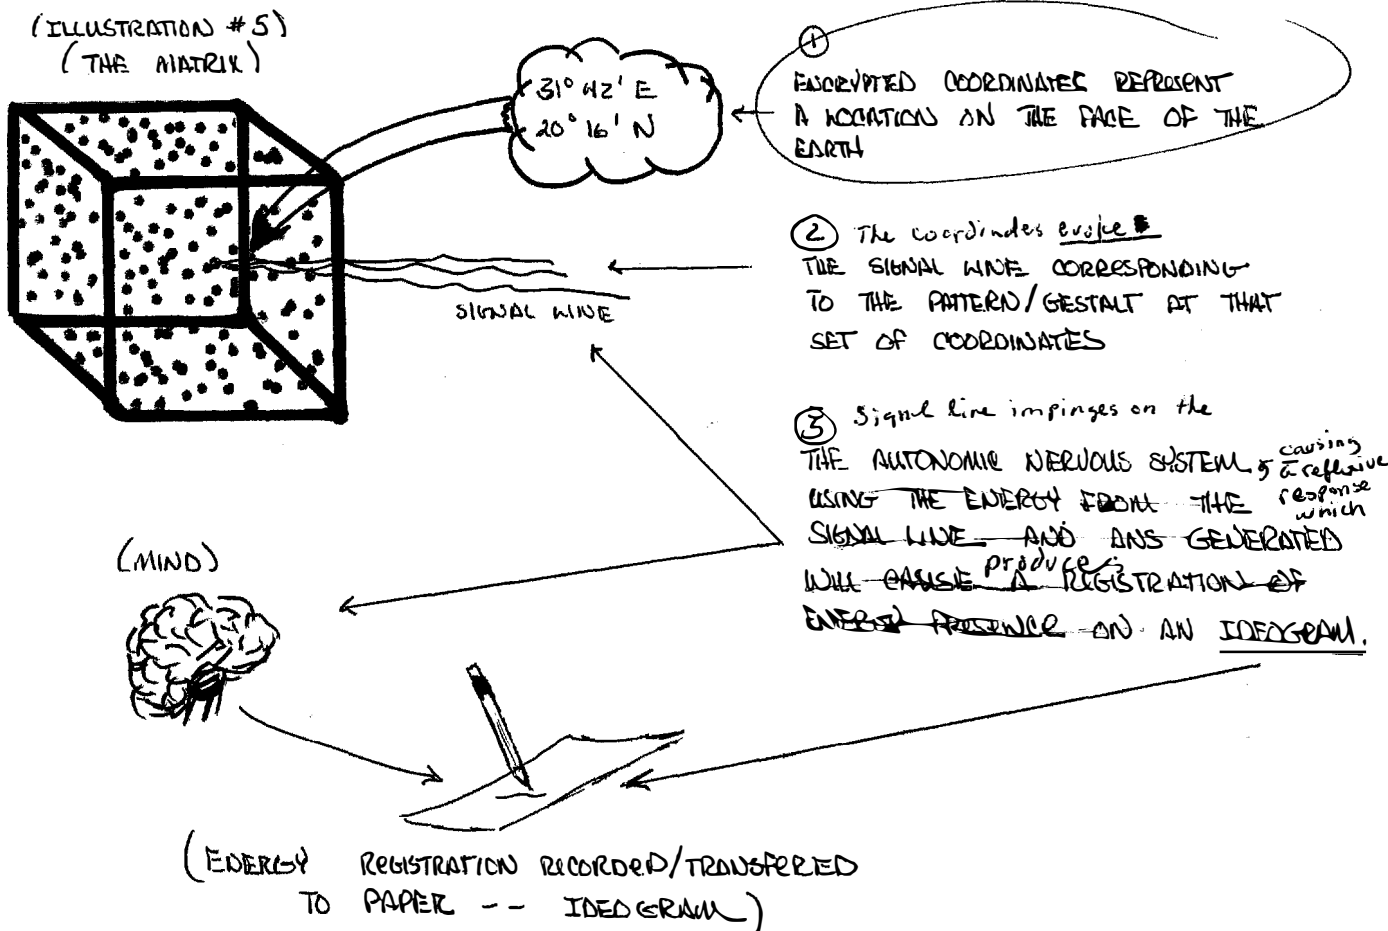 (ILLUSTRATION #5)
(THE MATRIX)
31° 42' E
20° 16' N
SIGNAL LINE
①
ENCRYPTED COORDINATES REPRESENT
A LOCATION ON THE FACE OF THE
EARTH
② The coordinates evoke
THE SIGNAL LINE CORRESPONDING
TO THE PATTERN/GESTALT AT THAT
SET OF COORDINATES
③ Signal line impinges on the
THE AUTONOMIC NERVOUS SYSTEM, causing
a reflexive
response
which
USING THE ENERGY FROM THE
SIGNAL LINE AND ANS GENERATED
produces
WILL CAUSE A REGISTRATION OF
ENERGY PRESENCE ON AN IDEOGRAM.
(MIND)
(ENERGY REGISTRATION RECORDED/TRANSFERED
TO PAPER -- IDEOGRAM)